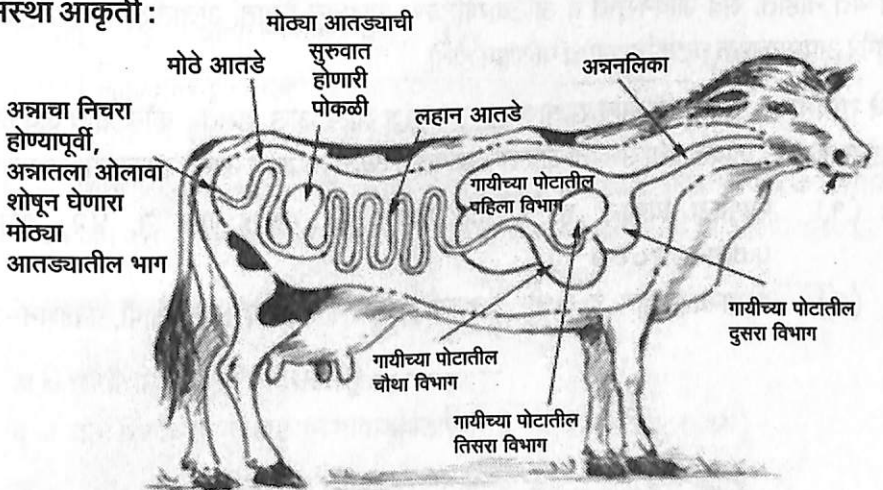 संस्था आकृती :
मोठे आतडे
मोठ्या आतड्याची
सुरुवात
होणारी
पोकळी
लहान आतडे
अन्ननलिका
अन्नाचा निचरा
होण्यापूर्वी,
अन्नातला ओलावा
शोषून घेणारा
मोठ्या
आतड्यातील भाग
गायीच्या पोटातील
पहिला विभाग
गायीच्या पोटातील
दुसरा विभाग
गायीच्या पोटातील
चौथा विभाग
गायीच्या पोटातील
तिसरा विभाग